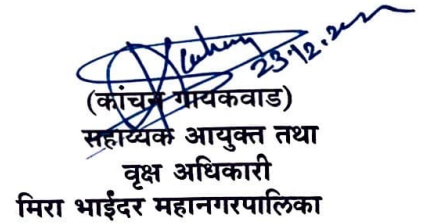 23.12.2022
(कांचन गायकवाड)
सहाय्यक आयुक्त तथा
वृक्ष अधिकारी
मिरा भाईंदर महानगरपालिका